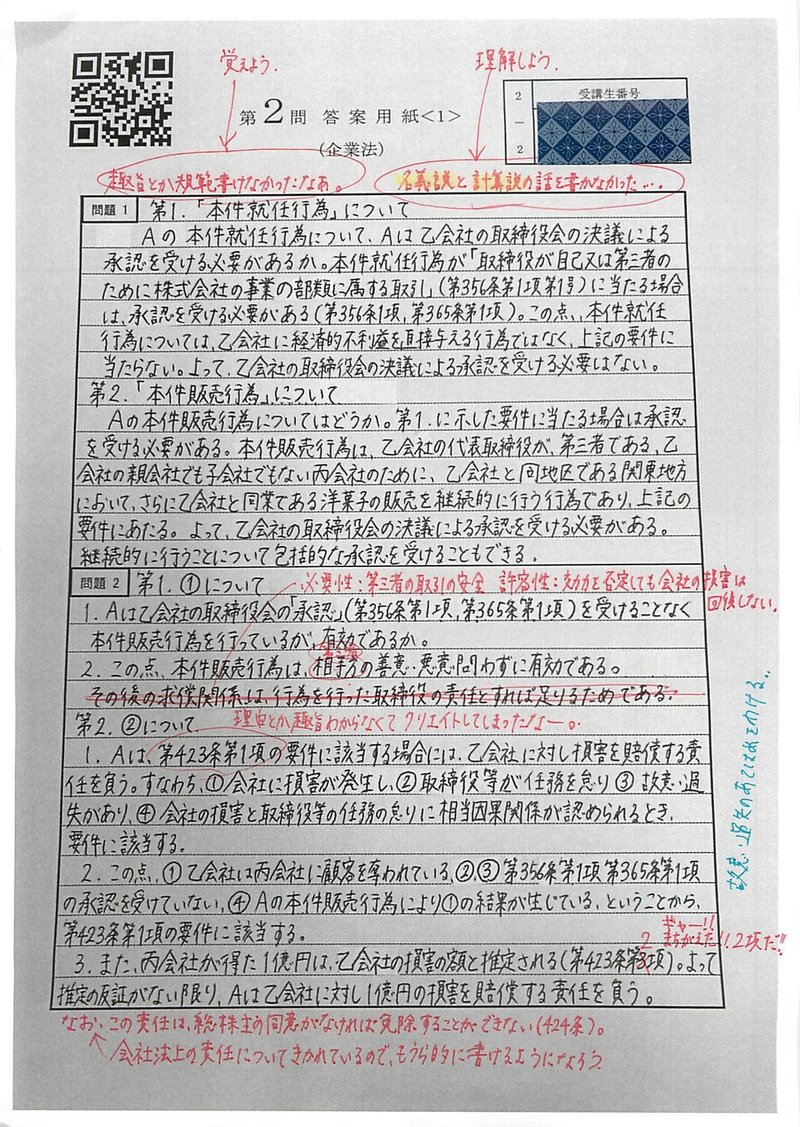 覚えよう.
理解しよう.
第2問 答案用紙<1>
(企業法)
2
—
2
受講生番号
趣旨とか規範書けなかったなあ。
名義説と計算説の話を書かなかった….
問題1
第1.「本件就任行為」について
Aの本件就任行為について、Aは乙会社の取締役会の決議による
承認を受ける必要があるか。本件就任行為が「取締役が自己又は第三者の
ために株式会社の事業の部類に属する取引」(第356条第1項第1号)に当たる場合
は、承認を受ける必要がある(第356条1項、第365条第1項)。この点、本件就任
行為については、乙会社に経済的不利益を直接与える行為ではなく、上記の要件に
当たらない。よって、乙会社の取締役会の決議による承認を受ける必要はない。
第2.「本件販売行為」について
Aの本件販売行為についてはどうか。第1.に示した要件に当たる場合は承認
を受ける必要がある。本件販売行為は、乙会社の代表取締役が、第三者である、乙
会社の親会社でも子会社でもない丙会社のために、乙会社と同地区である関東地方
において、さらに乙会社と同業である洋菓子の販売を継続的に行う行為であり、上記の
要件にあたる。よって、乙会社の取締役会の決議による承認を受ける必要がある。
継続的に行うことについて包括的な承認を受けることもできる.
問題2
第1.①について
必要性:第三者の取引の安全 許容性:効力を否定しても会社の損害は
回復しない。
1.Aは乙会社の取締役会の「承認」(第356条第1項、第365条第1項)を受けることなく
本件販売行為を行っているが、有効であるか。
第三者
2.この点、本件販売行為は、相手方の善意・悪意問わずに有効である。
その後の求償関係は、行為を行った取締役の責任とすれば足りるためである.
第2.②について
理由とか趣旨わからなくてクリエイトしてしまったなー。
1.Aは、第423条第1項の要件に該当する場合には、乙会社に対し損害を賠償する責
任を負う。すなわち、①会社に損害が発生し、②取締役等が任務を怠り③故意・過
失があり、④会社の損害と取締役等の任務の怠りに相当因果関係が認められるとき、
要件に該当する。
2.この点、①乙会社は丙会社に顧客を奪われている、②③第356条第1項第365条第1項
の承認を受けていない、④Aの本件販売行為により①の結果が生じている、ということから、
第423条第1項の要件に該当する。
ギャー!!
2 まちがえた!!2項だ!!
3.また、丙会社が得た1億円は、乙会社の損害の額と推定される(第423条第3項)。よって
推定の反証がない限り、Aは乙会社に対し1億円の損害を賠償する責任を負う。
なお、この責任は、総株主の同意がなければ免除することができない(424条)。
会社法上の責任についてきかれているので、もうら的に書けるようになろう
故意・過失のあてはめをわける..